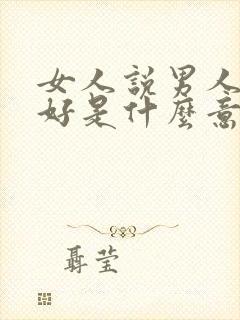 女人說男人
好是什麼意
聶莹